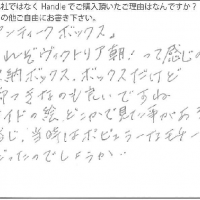 社ではなく Handleでご購入頂いたご理由はなんですか?
の他ご自由にお書き下さい。
アンティークボックス。
れぞヴィクトリア朝!って感じの
納ボックス。ボックスだけど
つきなのも良いですね
イドの絵、どこかで見た事がある
感じ、当時はポピュラーなモチー
だったのでしょうか…